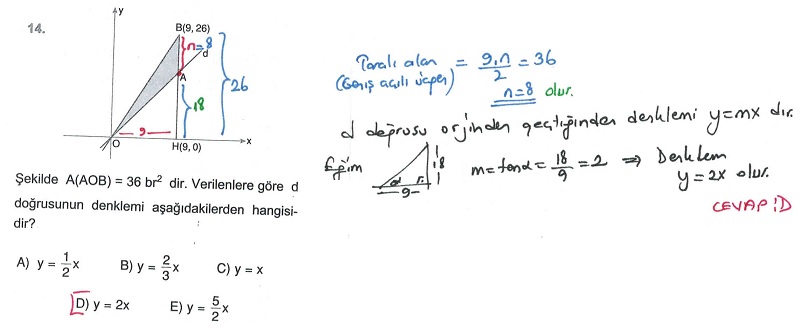 14.
y
B(9, 26)
n=8
d
A
26
18
9
O
H(9, 0)
x
Şekilde A(AOB) = 36 br² dir. Verilenlere göre d
doğrusunun denklemi aşağıdakilerden hangisi-
dir?
A) y = 1/2 x B) y = 2/3 x C) y = x
D) y = 2x E) y = 5/2 x
Taralı alan = 9.n/2 = 36
(Geniş açılı üçgen)
n=8 olur.
d doğrusu orjinden geçtiğinden denklemi y=mx dir.
Eğim
α
18
9
m=tanα= 18/9 =2 ⇒ Denklem
y=2x olur.
CEVAP:D